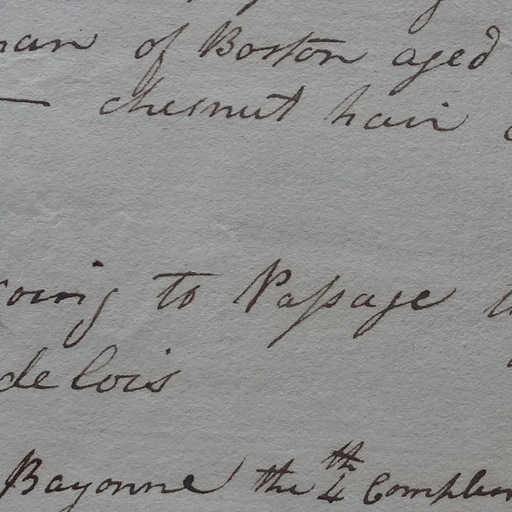 man of Boston aged
— chesnut hair
going to Passage
de Cois
Bayonne the 4th Complem